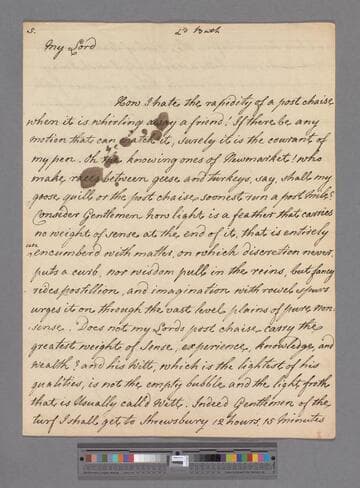 5.
Ld Bath
My Lord
How I hate the rapidity of a post chaise
when it is whirling away a friend! If there be any
motion that can catch it, surely it is the courant of
my pen. Oh ye knowing ones of Newmarket! who
make races between geese and turkeys, say, shall my
goose quill or the post chaise soonest run a post mile?
Consider Gentlemen how light is a feather that carries
no weight of sense at the end of it, that is entirely
un
encumberd with matter, on which discretion never
puts a curb, nor wisdom pull in the reins, but fancy
rides postillion, and imagination with rowel spurs
urges it on through the vast level plains of pure non
sense. Does not my Lords post chaise carry the
greatest weight of Sense, experience, knowledge, and
Wealth? and his Witt, which is the lightest of his
qualities, is not the empty bubble and the light froth
that is Usually calld Witt. Indeed Gentlemen of the
turf I shall get to Shrewsbury 12 hours, 15 minutes